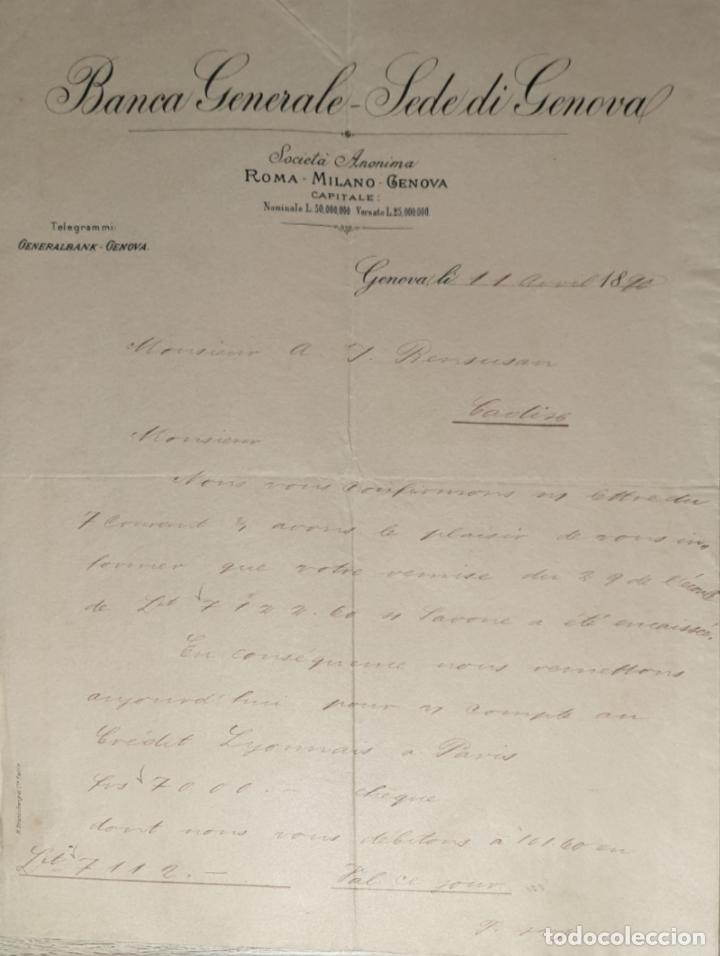 Banca Generale - Sede di Genova
Società Anonima
ROMA - MILANO - GENOVA
CAPITALE:
Nominale L. 50,000,000 Versato L. 25,000,000
Telegrammi:
GENERALBANK - GENOVA.
Genova, li 11 avril 1890
Monsieur A. J. Bensusan
Cadix
Monsieur
Nous vous confirmons n/ lettre du
7 courant & avons le plaisir de vous in
former que votre remise du 29 de l'écoulé
de Lit 7122.60 s/ Savone a été encaissé.
En conséquence nous remettons
aujourd'hui pour v/ compte au
Crédit Lyonnais a Paris
frs 7000.- chèque
dont nous vous debitons à 101 60 en
Lit 7112.- Val ce jour
todocoleccion